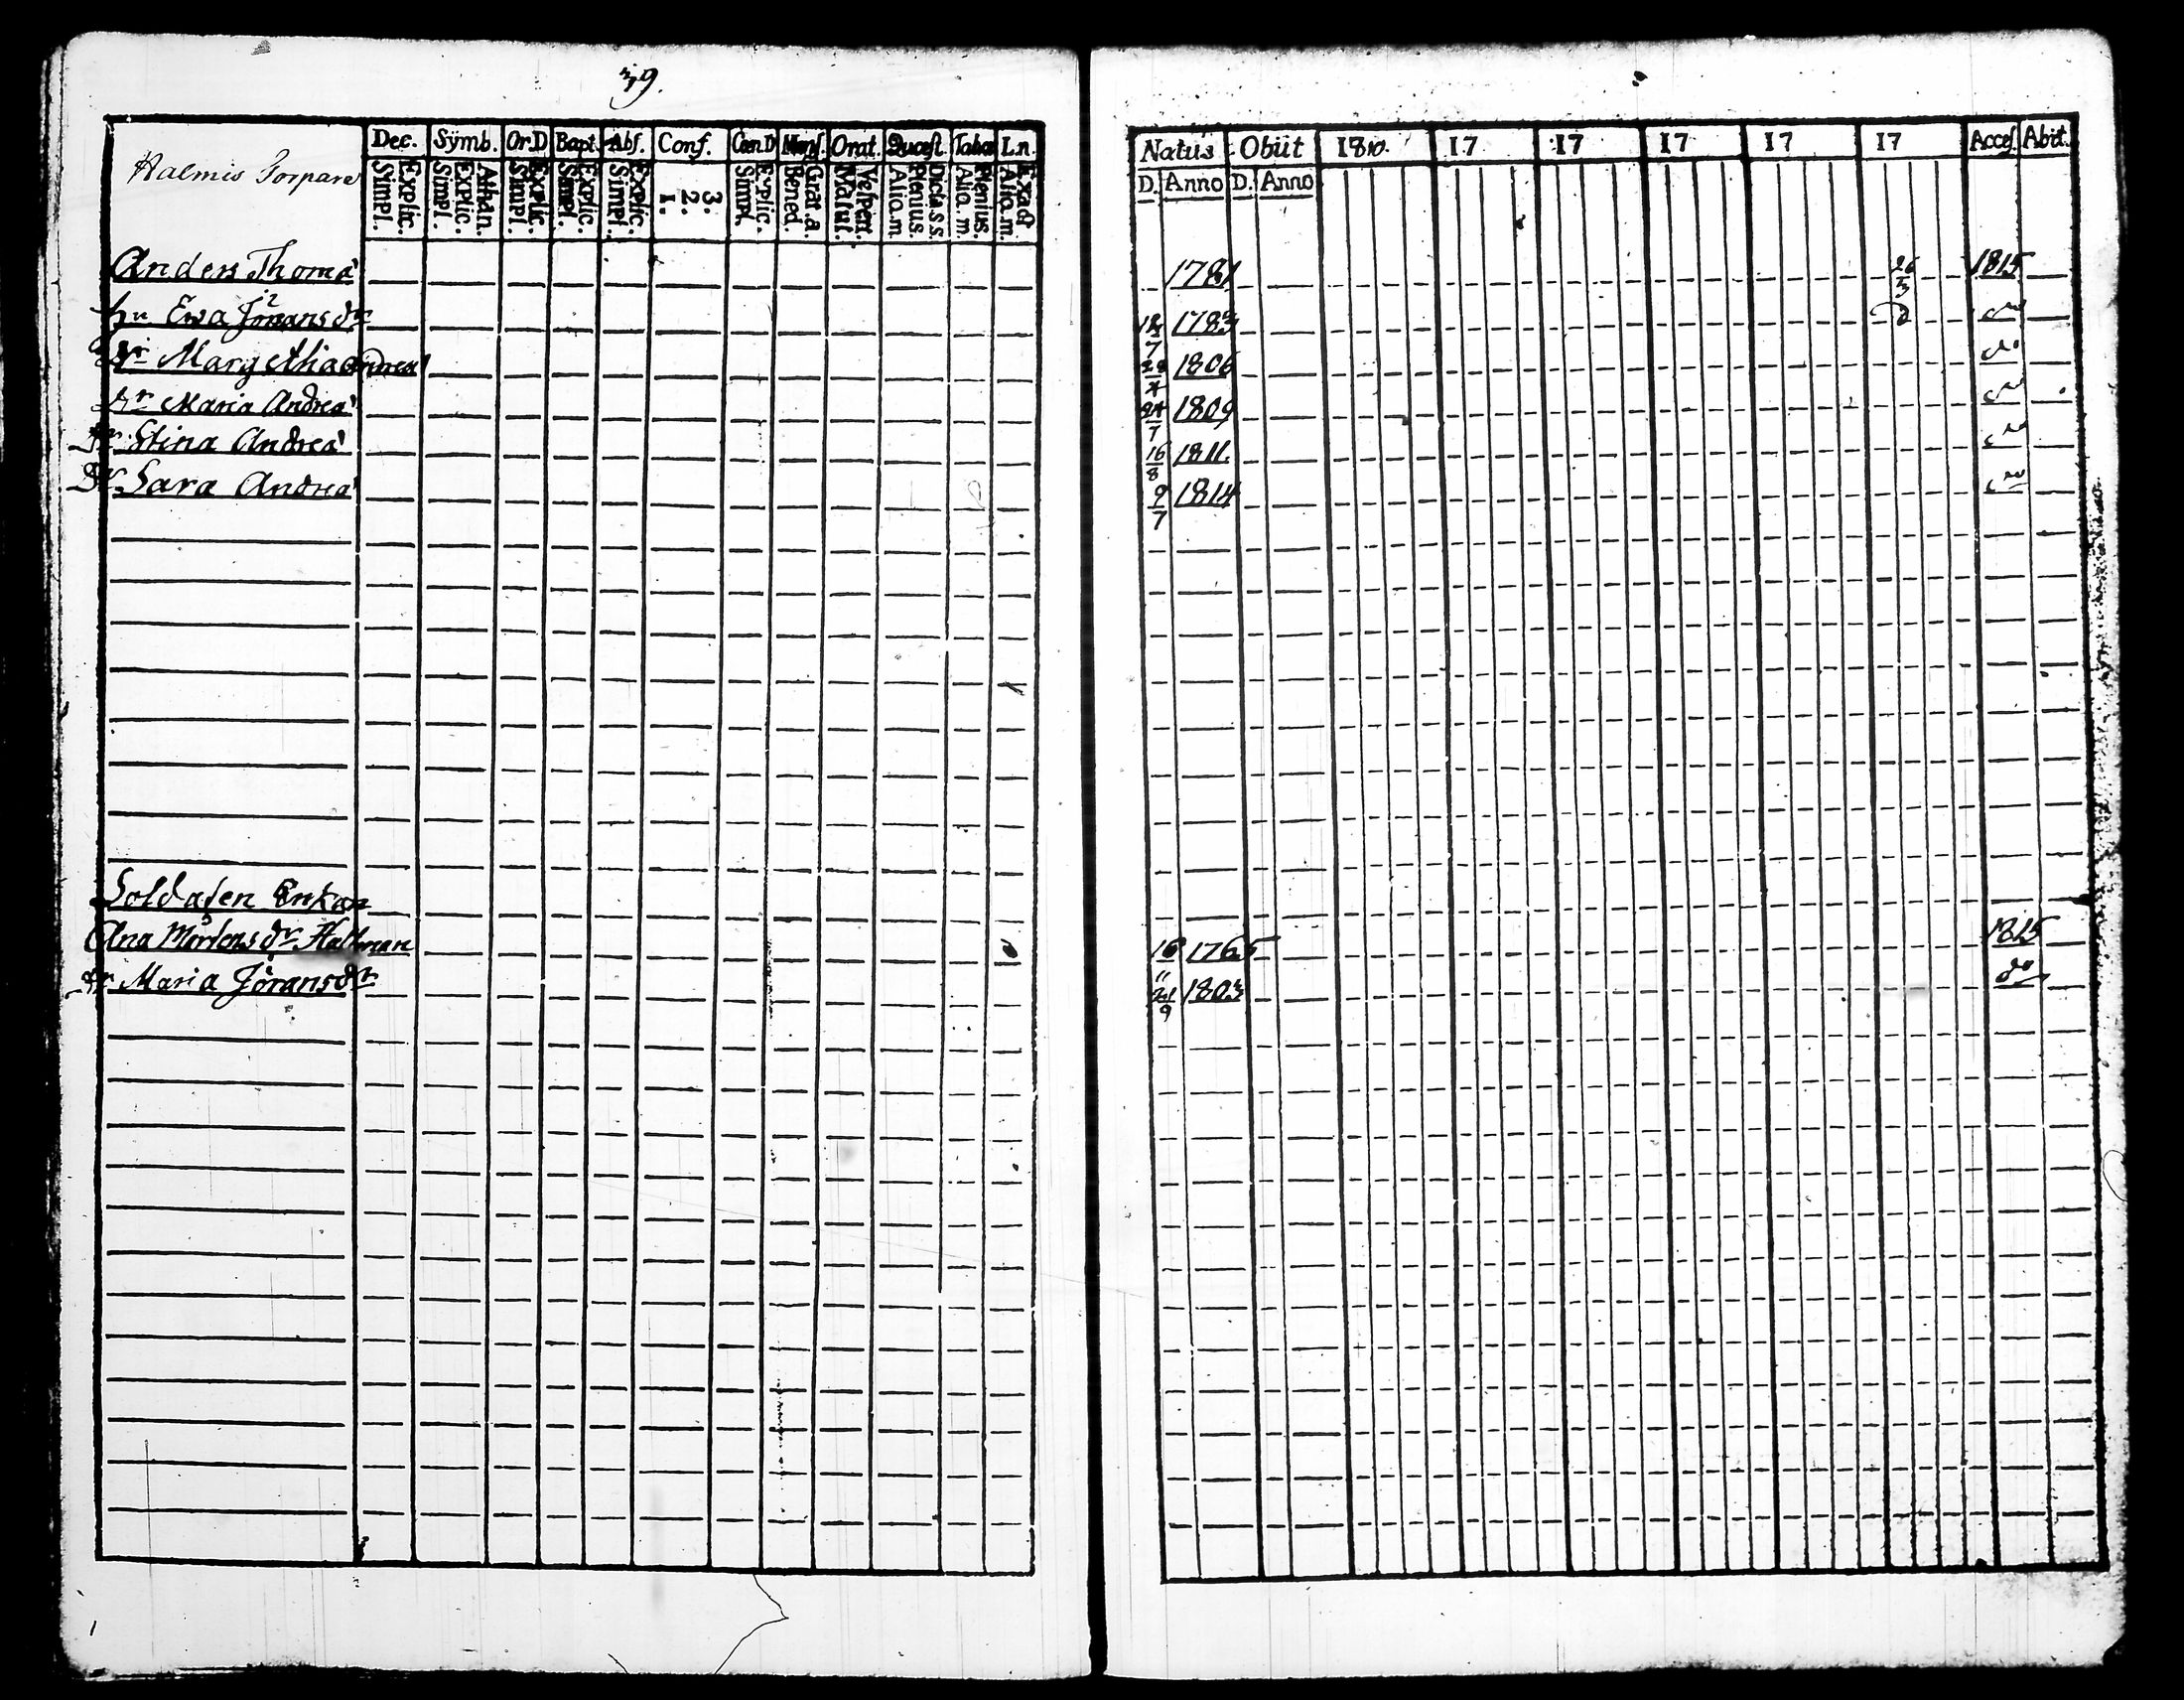 39.
Dec. Symb. Or.D Bapt. Abs. Conf. Cœn.D Mens. Orat. Quæst. Taba Ln.
Halmis Torpare
Explic. Simpl. Athan. Explic. Simpl. Explic. Simpl. Explic. Simpl. Explic. Simpl. 3. 2. 1. Explic. Simpl. Grat. a. Bened. Vespert. Matut. Dicta s.s. Plenius. Alio. m. Plenius. Alio. m. Exact Alio. m.
Anders Thomæ
hu Ewa Jöransdr
dr Margetha Andreæ
dr Maria Andreæ
dr Stina Andreæ
dr Sara Andreæ
Soldaten Enkan
Ana Mårtensdr Hallman
dr Maria Jöransdr
Natus Obiit 1810. 17 17 17 17 17 Acces. Abit.
D. Anno D. Anno
1781 26/3 1815
1783 do
1806 do
1809 do
16/8 1811 do
9/7 1814 do
16/11 1765 1815
21/9 1803 do